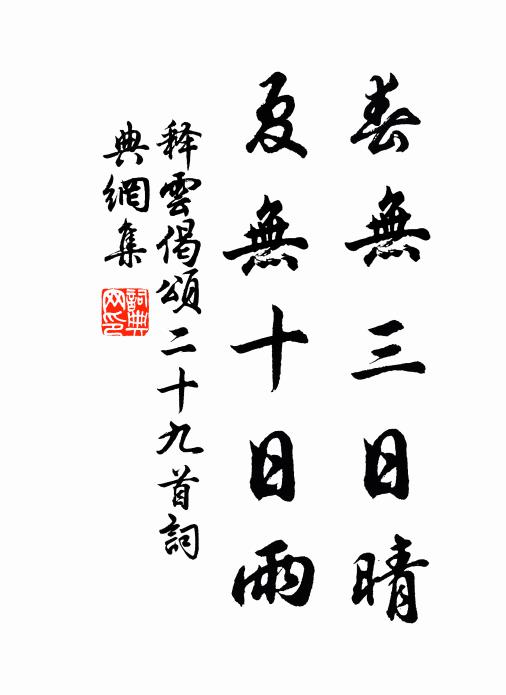 春無三日晴
夏無十日雨
釋雲偈頌二十九首詞
典網集
詞典
網印